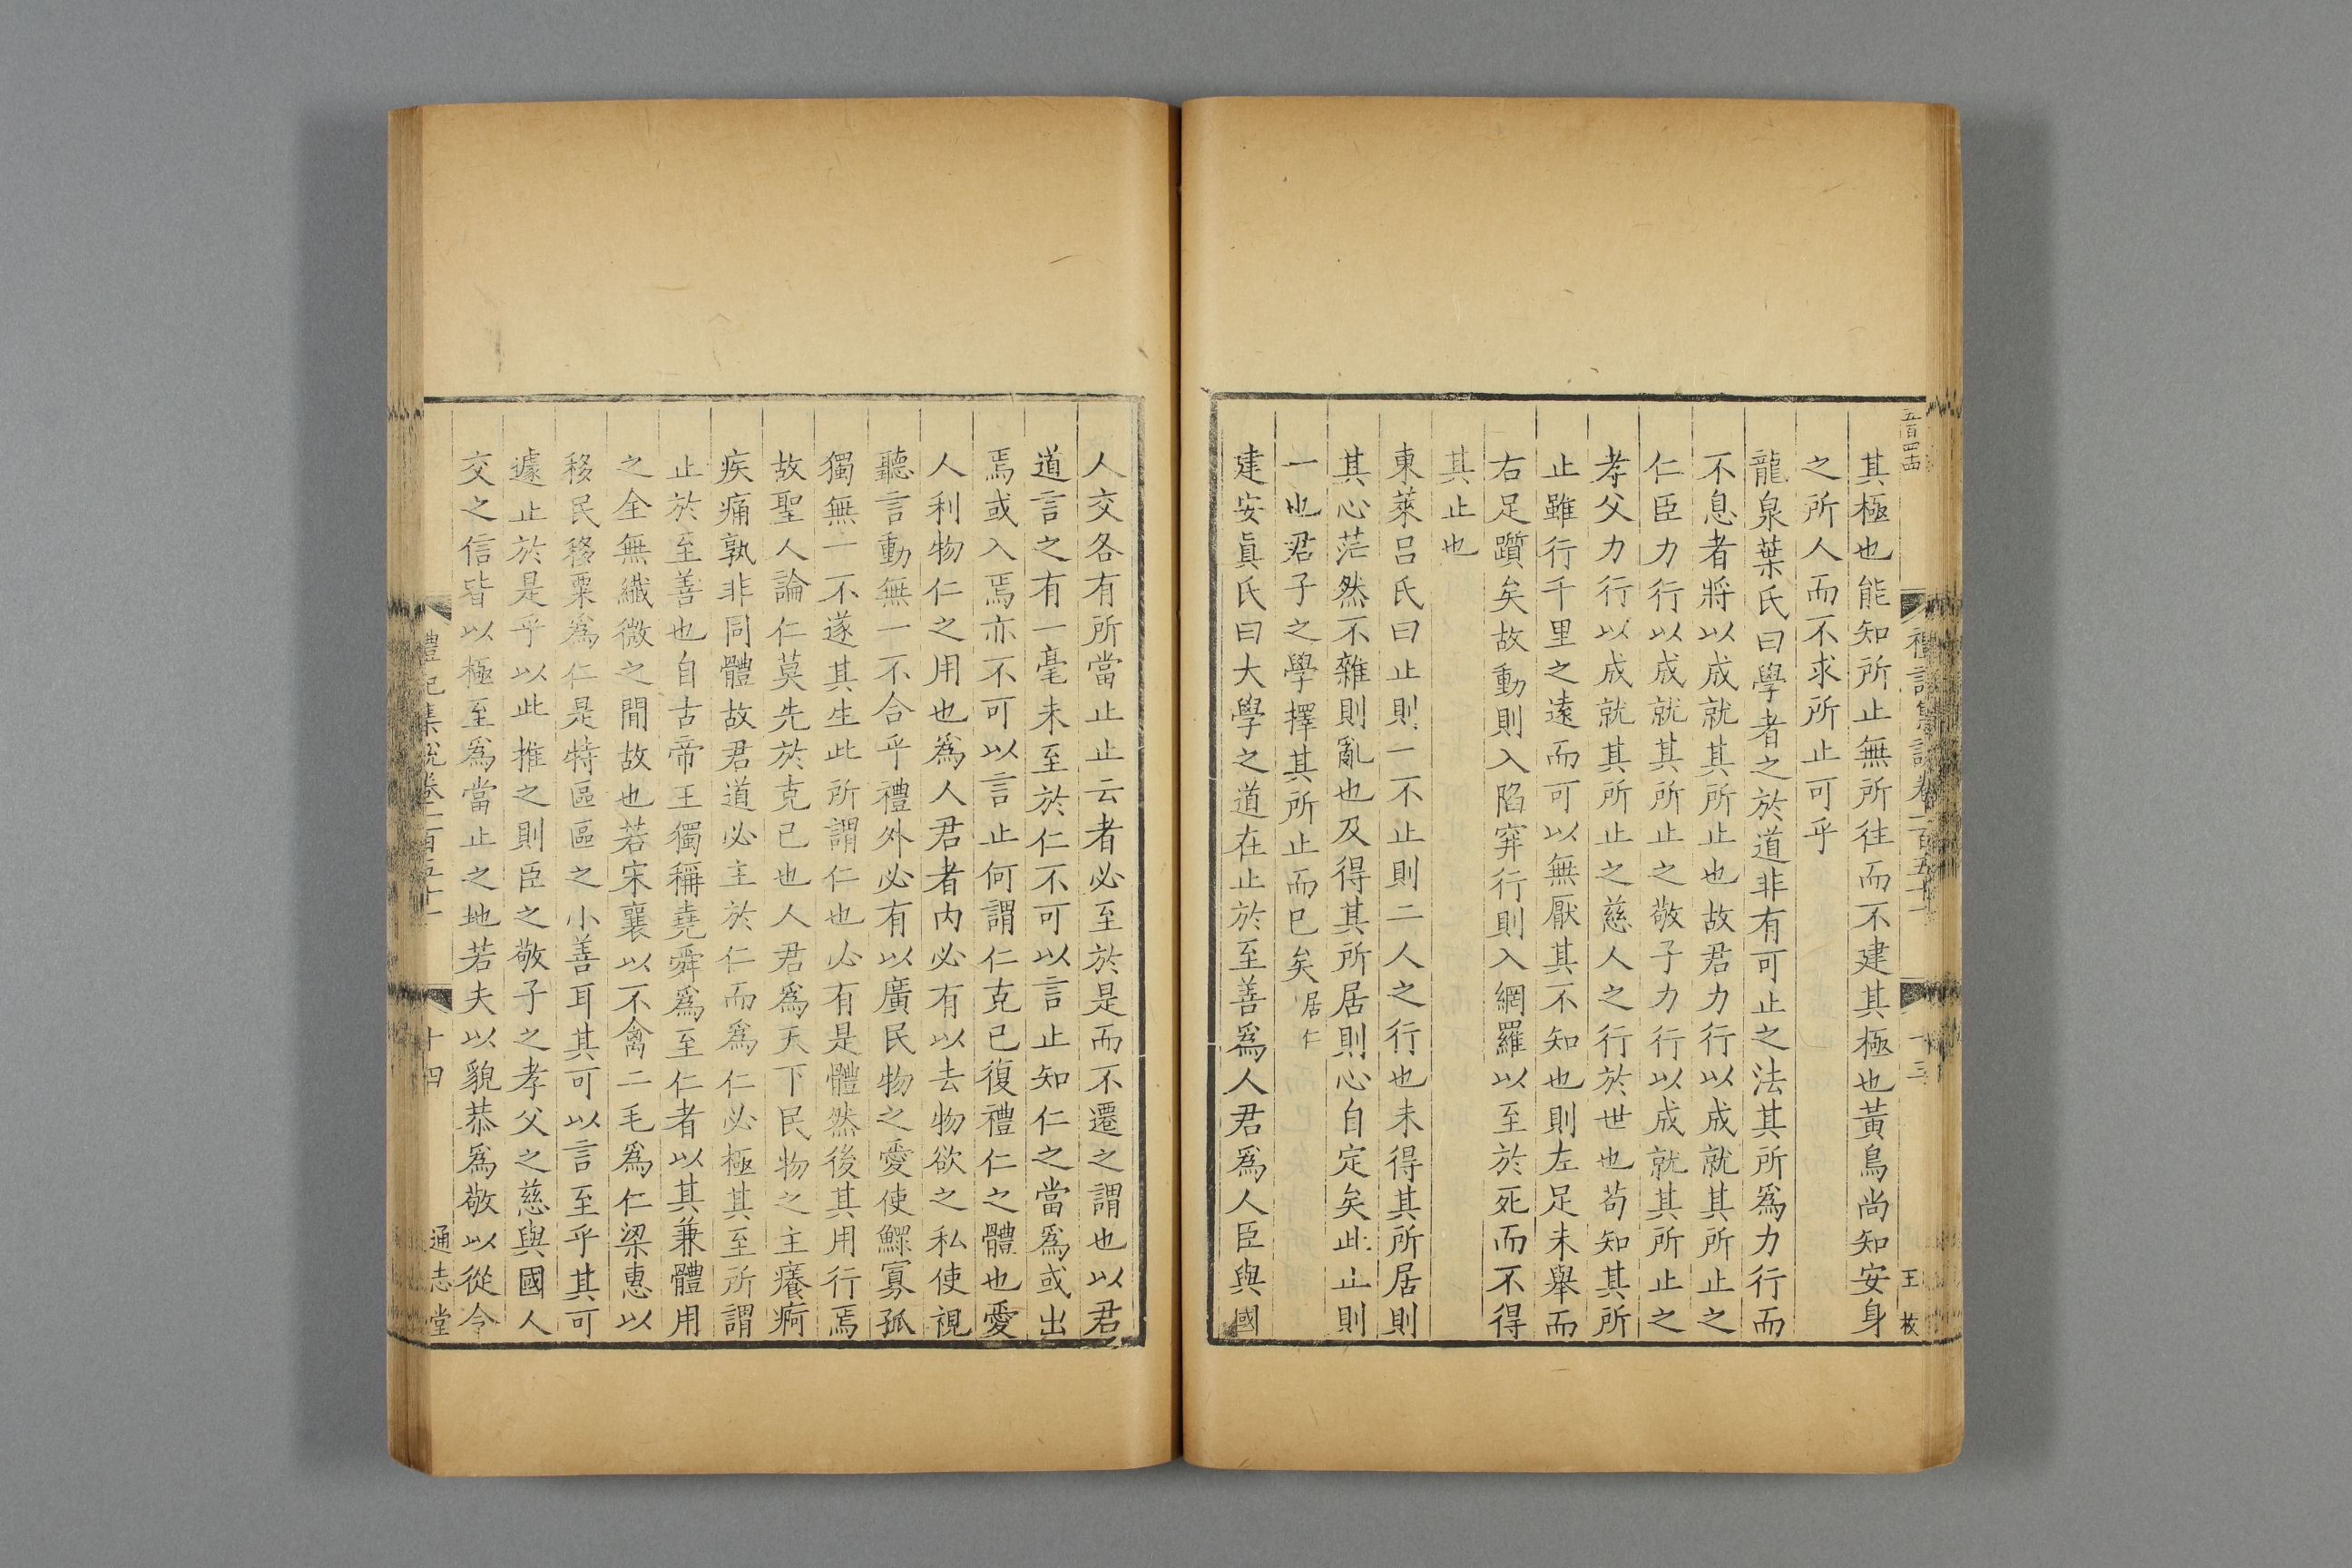 其極也能知所止無所往而不建其極也黃鳥尚知安身
之所人而不求所止可乎
龍泉葉氏曰學者之於道非有可止之法其所爲力行而
不息者將以成就其所止也故君力行以成就其所止之
仁臣力行以成就其所止之敬子力行以成就其所止之
孝父力行以成就其所止之慈人之行於世也苟知其所
止雖行千里之遠而可以無厭其不知也則左足未舉而
右足躓矣故動則入陷穽行則入網羅以至於死而不得
其止也
東萊呂氏曰止則一不止則二人之行也未得其所居則
其心茫然不雜則亂也及得其所居則心自定矣此止則
一也君子之學擇其所止而已矣居仁
建安眞氏曰大學之道在止於至善爲人君爲人臣與國
人交各有所當止止云者必至於是而不遷之謂也以君
道言之有一毫未至於仁不可以言止知仁之當爲或出
焉或入焉亦不可以言止何謂仁克已復禮仁之體也愛
人利物仁之用也爲人君者內必有以去物欲之私使視
聽言動無一不合乎禮外必有以廣民物之愛使鰥寡孤
獨無一不遂其生此所謂仁也必有是體然後其用行焉
故聖人論仁莫先於克已也人君爲天下民物之主癢疴
疾痛孰非同體故君道必主於仁而爲仁必極其至所謂
止於至善也自古帝王獨稱堯舜爲至仁者以其兼體用
之全無纖微之閒故也若宋襄以不禽二毛爲仁梁惠以
移民移粟爲仁是特區區之小善耳其可以言至乎其可
遽止於是乎以此推之則臣之敬子之孝父之慈與國人
交之信皆以極至爲當止之地若夫以貌恭爲敬以從令
禮記集說卷一百五十一
十四
通志堂
禮記集說卷一百五十一
十三
王